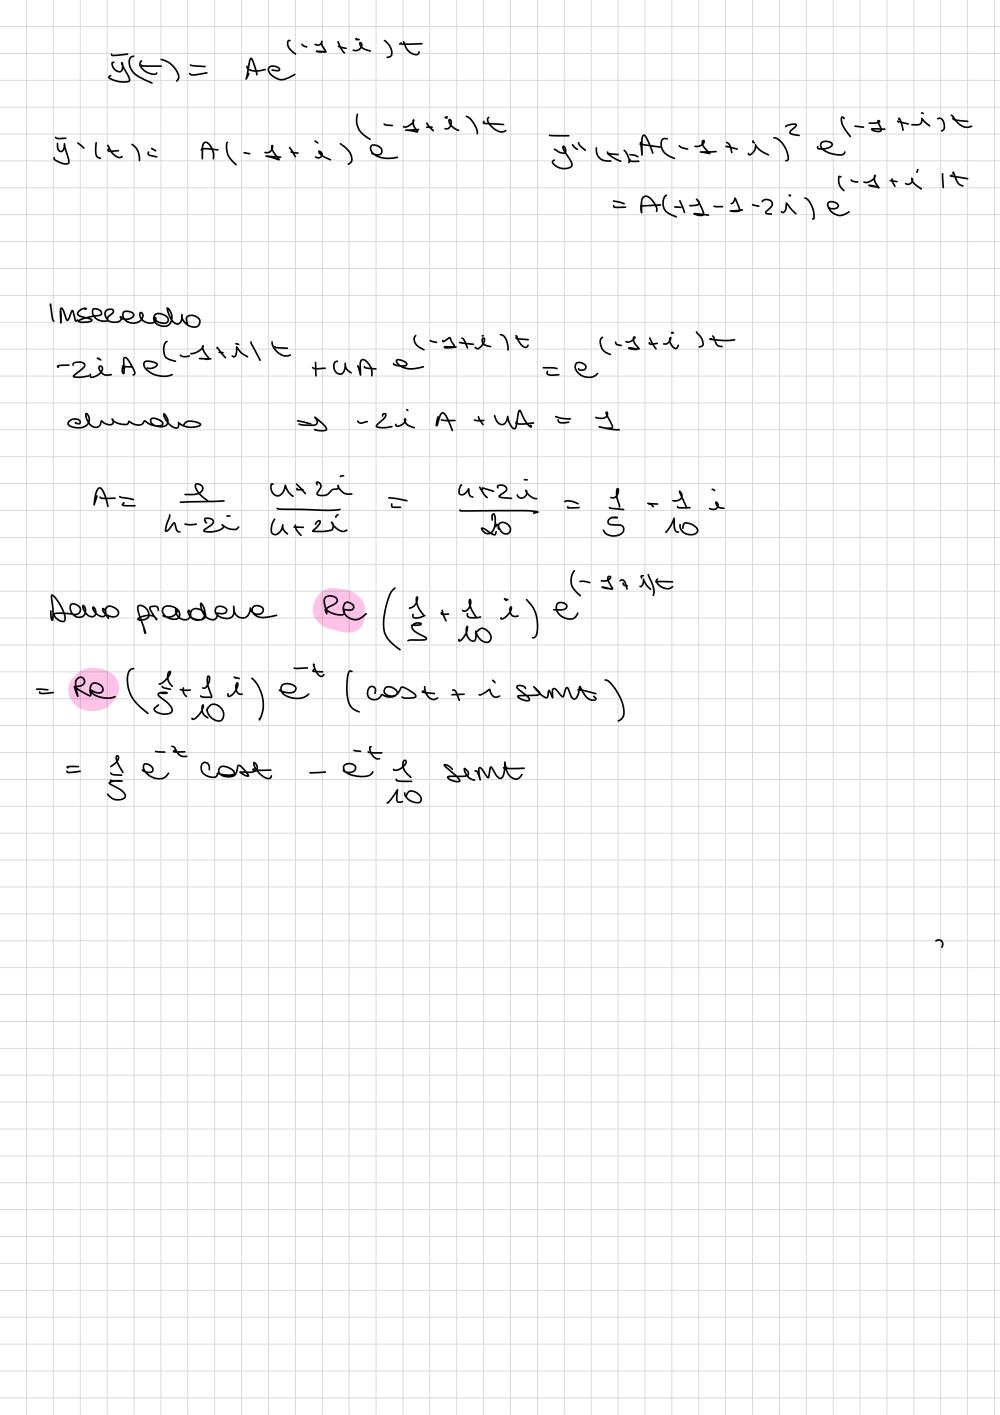 ȳ(t) = Ae^{(-1+i)t}
ȳ'(t) = A(-1+i)e^{(-1+i)t}  ȳ''(t) = A(-1+i)² e^{(-1+i)t}
= A(+1-1-2i)e^{(-1+i)t}
Inserendo
-2iAe^{(-1+i)t} + 4A e^{(-1+i)t} = e^{(-1+i)t}
dividendo ⇒ -2i A + 4A = 1
A = 1/(4-2i) (4+2i)/(4+2i) = (4+2i)/20 = 1/5 + 1/10 i
Devo prendere Re (1/5 + 1/10 i) e^{(-1+i)t}
= Re (1/5 + 1/10 i) e^{-t} (cost + i sint)
= 1/5 e^{-t} cost - e^{-t} 1/10 sint